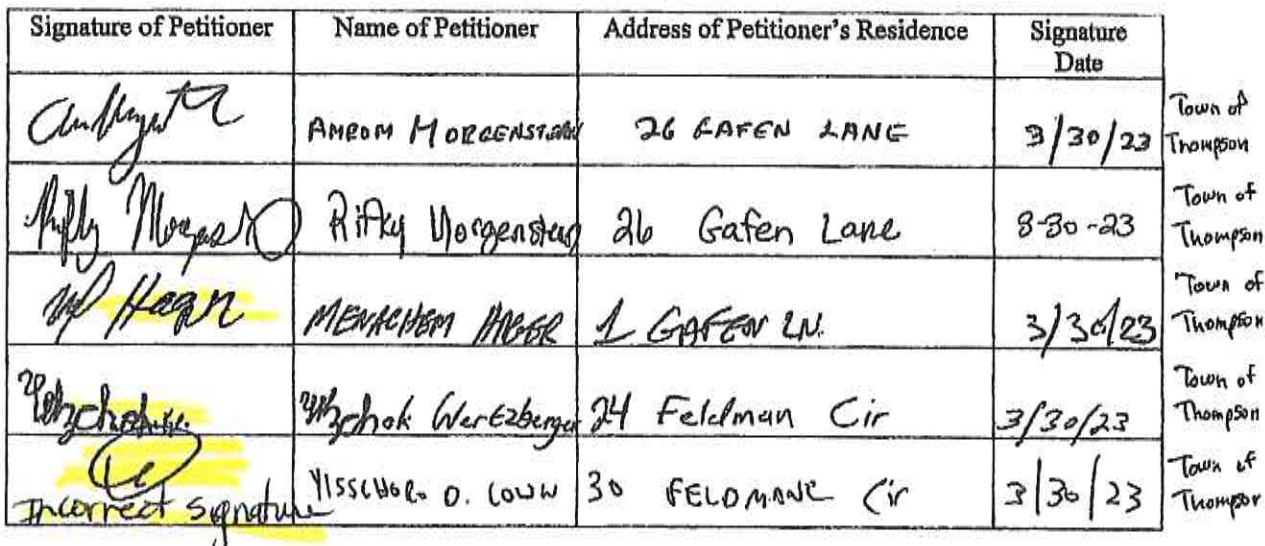 Signature of Petitioner Name of Petitioner Address of Petitioner's Residence Signature Date
AMROM MORGENSTERN 26 GAFEN LANE 3/30/23 Town of Thompson
Rifky Morgenstern 26 Gafen Lane 3-30-23 Town of Thompson
Hager MENACHEM HAGER 1 GAFEN LN. 3/30/23 Town of Thompson
Yitzchok Wertzberger 24 Feldman Cir 3/30/23 Town of Thompson
YISSCHOR D. 30 FELDMANE Cir 3/30/23 Town of Thompson
Incorrect signature